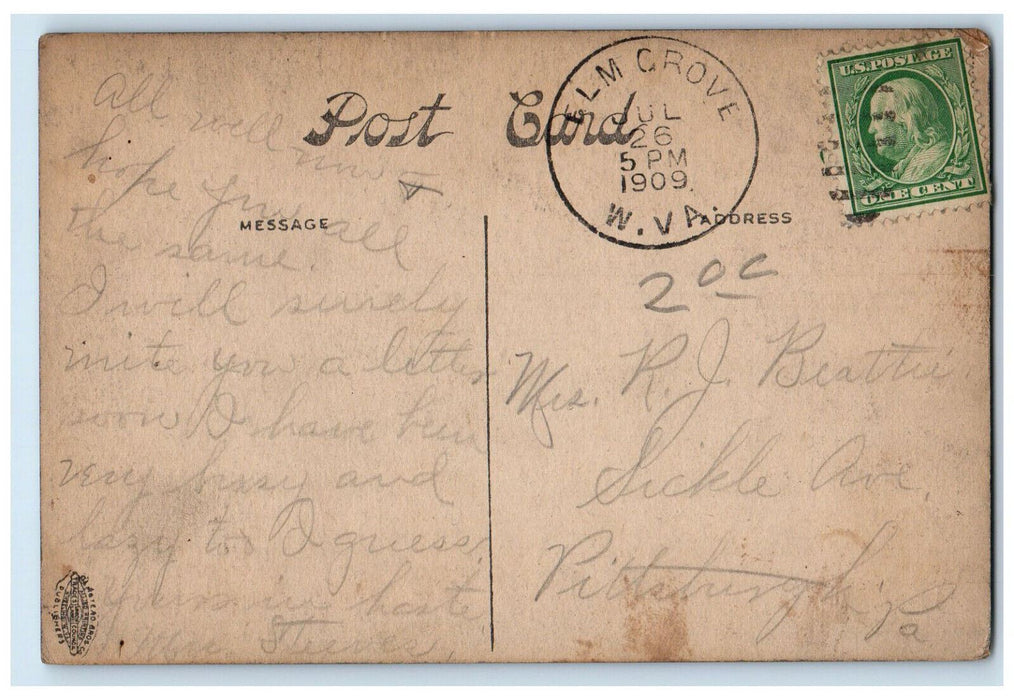 Post Card
ELM GROVE
JUL
26
5 PM
1909
W. VA.
U.S. POSTAGE
ONE CENT
MESSAGE
ADDRESS
All well
now
hope you all
the same.
I will surely
write you a letter
soon I have been
very busy and
lazy to I guess,
Yours in haste
Steeves,
20c
Mrs. R. J. Beattie
Sickle Ave.
Pittsburgh,
Pa
PUBLISHERS